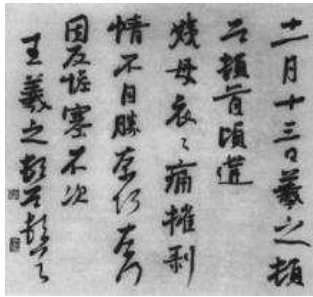 十一月十三日羲之頓
首頓首頃遘
姨母哀〻痛摧剥
情不自勝奈何奈何
因反慘塞不次
王羲之頓首頓首